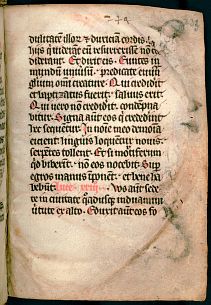 dulitatē illoꝝ ⁊ duriciā cordis.
hiis qͥ uiderāt eū resurrexisse nō c̄
diderant. Et dixit eis. Euntes in
mundū uniūsū. predicate euuā
gliū omī creature. Qͥ uͦ credidit
et baptizatus fuerit: saluus erit.
Qͥ uero nō credidit. condēpna
bitur. Signa aūt eos qͥ credidint
hec sequētur. In noīe meo demoīa
eicient. linguis loquētur nouis.
serpētes tollent. Et si mortiferum
qͥd biberīt. nō eos nocebit. Sup
egros manus īponēt. et bene ha
bebūt. Vos aūt sede
te in ciuitate qͦadusqꝫ induamini
uirtute ex alto. Eduxit aūt eos fo